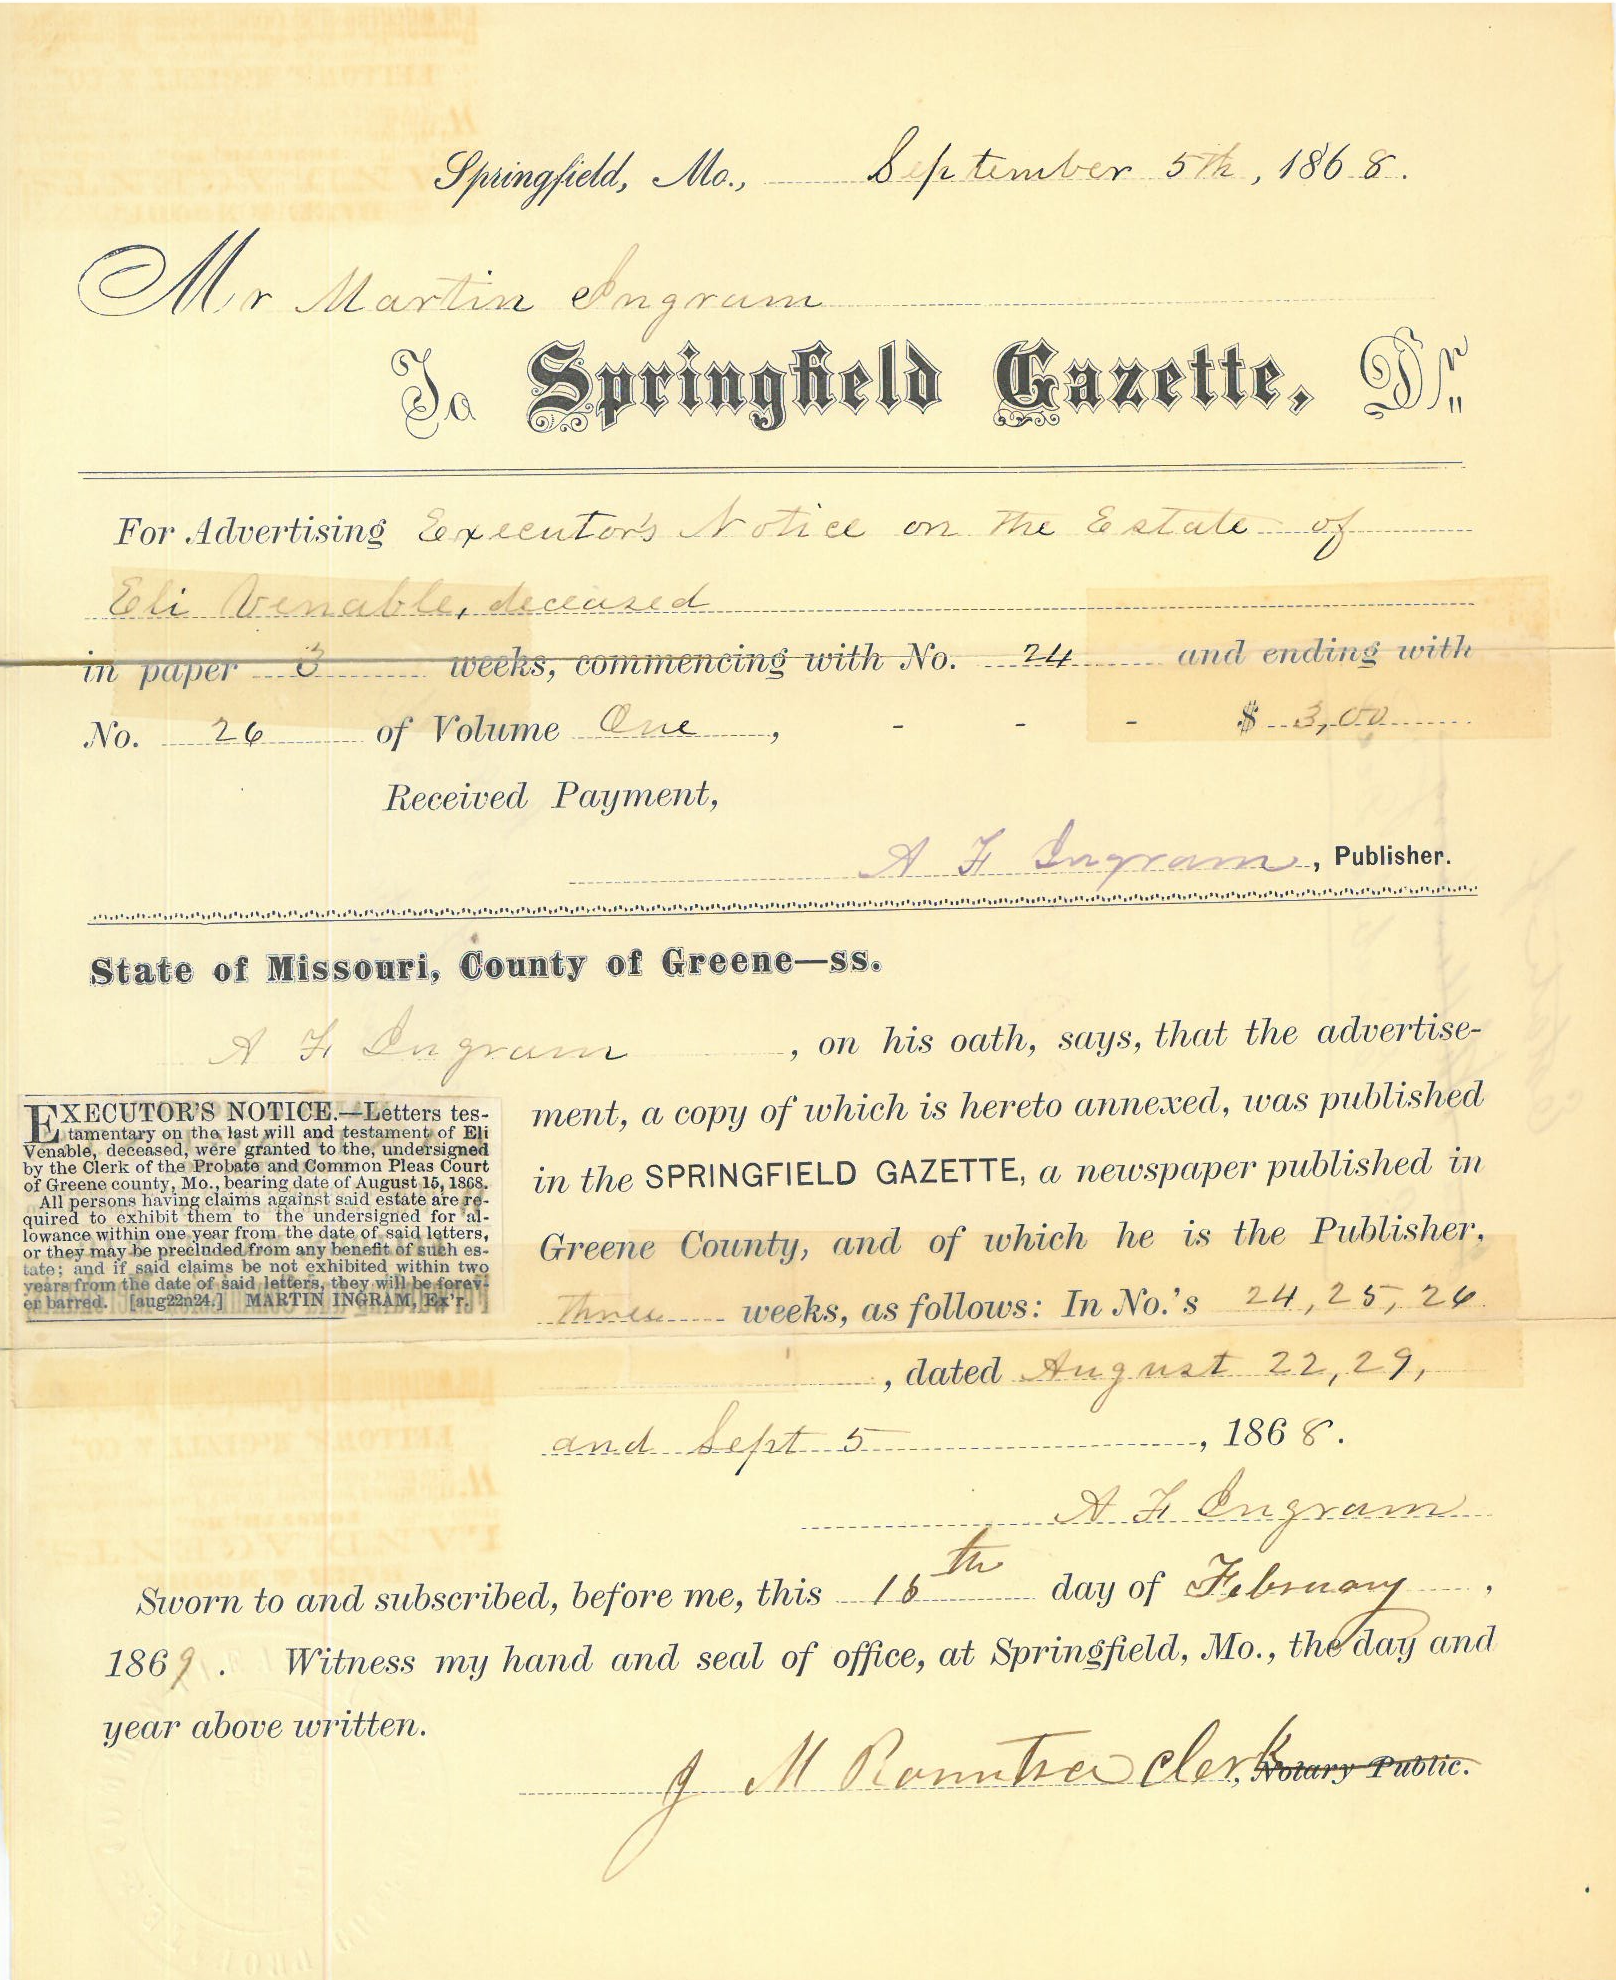 Springfield, Mo., September 5th, 1868.
Mr Martin Ingram
To Springfield Gazette, Dr.
For Advertising Executor's Notice on the Estate of
Eli Venable, deceased
in paper 3 weeks, commencing with No. 24 and ending with
No. 26 of Volume One, - - - $ 3,00
Received Payment,
A F Ingram, Publisher.
State of Missouri, County of Greene—ss.
A F Ingram, on his oath, says, that the advertise-
ment, a copy of which is hereto annexed, was published
in the SPRINGFIELD GAZETTE, a newspaper published in
Greene County, and of which he is the Publisher,
three weeks, as follows: In No.'s 24, 25, 26
, dated August 22, 29,
and Sept 5, 1868.
A F Ingram
EXECUTOR'S NOTICE.—Letters tes-
tamentary on the last will and testament of Eli
Venable, deceased, were granted to the, undersigned
by the Clerk of the Probate and Common Pleas Court
of Greene county, Mo., bearing date of August 15, 1868.
All persons having claims against said estate are re-
quired to exhibit them to the undersigned for al-
lowance within one year from the date of said letters,
or they may be precluded from any benefit of such es-
tate; and if said claims be not exhibited within two
years from the date of said letters, they will be forev-
er barred. [aug22n24.] MARTIN INGRAM, Ex'r.
Sworn to and subscribed, before me, this 16th day of February,
1869. Witness my hand and seal of office, at Springfield, Mo., the day and
year above written.
J M Rountree Clerk, Notary Public.